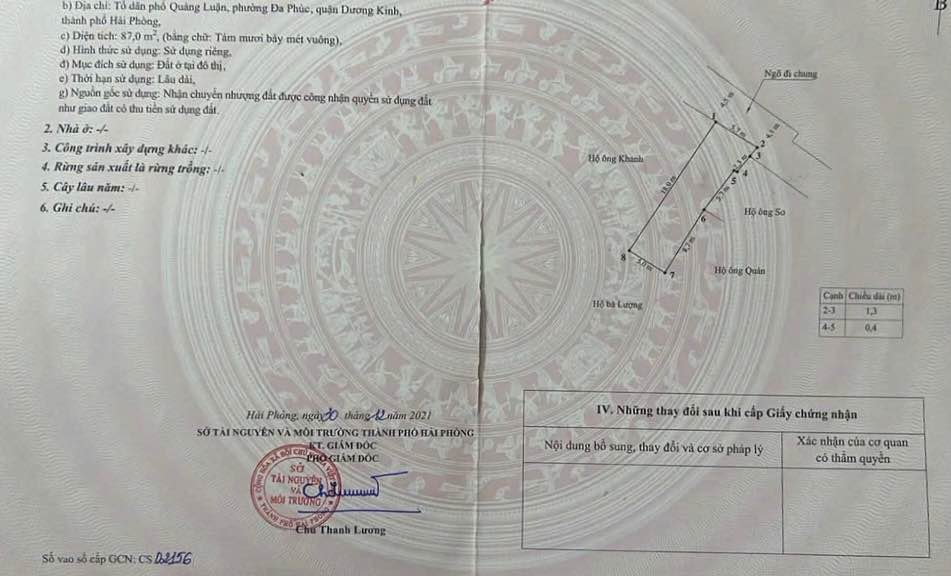 b) Địa chỉ: Tổ dân phố Quảng Luận, phường Đa Phúc, quận Dương Kinh,
thành phố Hải Phòng,
c) Diện tích: 87,0 m², (bằng chữ: Tám mươi bảy mét vuông),
d) Hình thức sử dụng: Sử dụng riêng,
đ) Mục đích sử dụng: Đất ở tại đô thị,
e) Thời hạn sử dụng: Lâu dài,
g) Nguồn gốc sử dụng: Nhận chuyển nhượng đất được công nhận quyền sử dụng đất
như giao đất có thu tiền sử dụng đất.
2. Nhà ở: -/-
3. Công trình xây dựng khác: -/-
4. Rừng sản xuất là rừng trồng: -/-
5. Cây lâu năm: -/-
6. Ghi chú: -/-
Ngõ đi chung
4,5 m
1
5,7 m
2
4,5 m
3
Hộ ông Khanh
4
5
18,0 m
6
Hộ ông So
8
5,0 m
7
Hộ ông Quân
Hộ bà Lượng
Cạnh Chiều dài (m)
2-3 1,3
4-5 0,4
Hải Phòng, ngày 30 tháng 12 năm 2021
SỞ TÀI NGUYÊN VÀ MÔI TRƯỜNG THÀNH PHỐ HẢI PHÒNG
KT. GIÁM ĐỐC
PHÓ GIÁM ĐỐC
SỞ
TÀI NGUYÊN
VÀ
MÔI TRƯỜNG
THÀNH PHỐ HẢI PHÒNG
Chu Thanh Lương
Số vào sổ cấp GCN: CS 02156
IV. Những thay đổi sau khi cấp Giấy chứng nhận
Nội dung bổ sung, thay đổi và cơ sở pháp lý
Xác nhận của cơ quan
có thẩm quyền